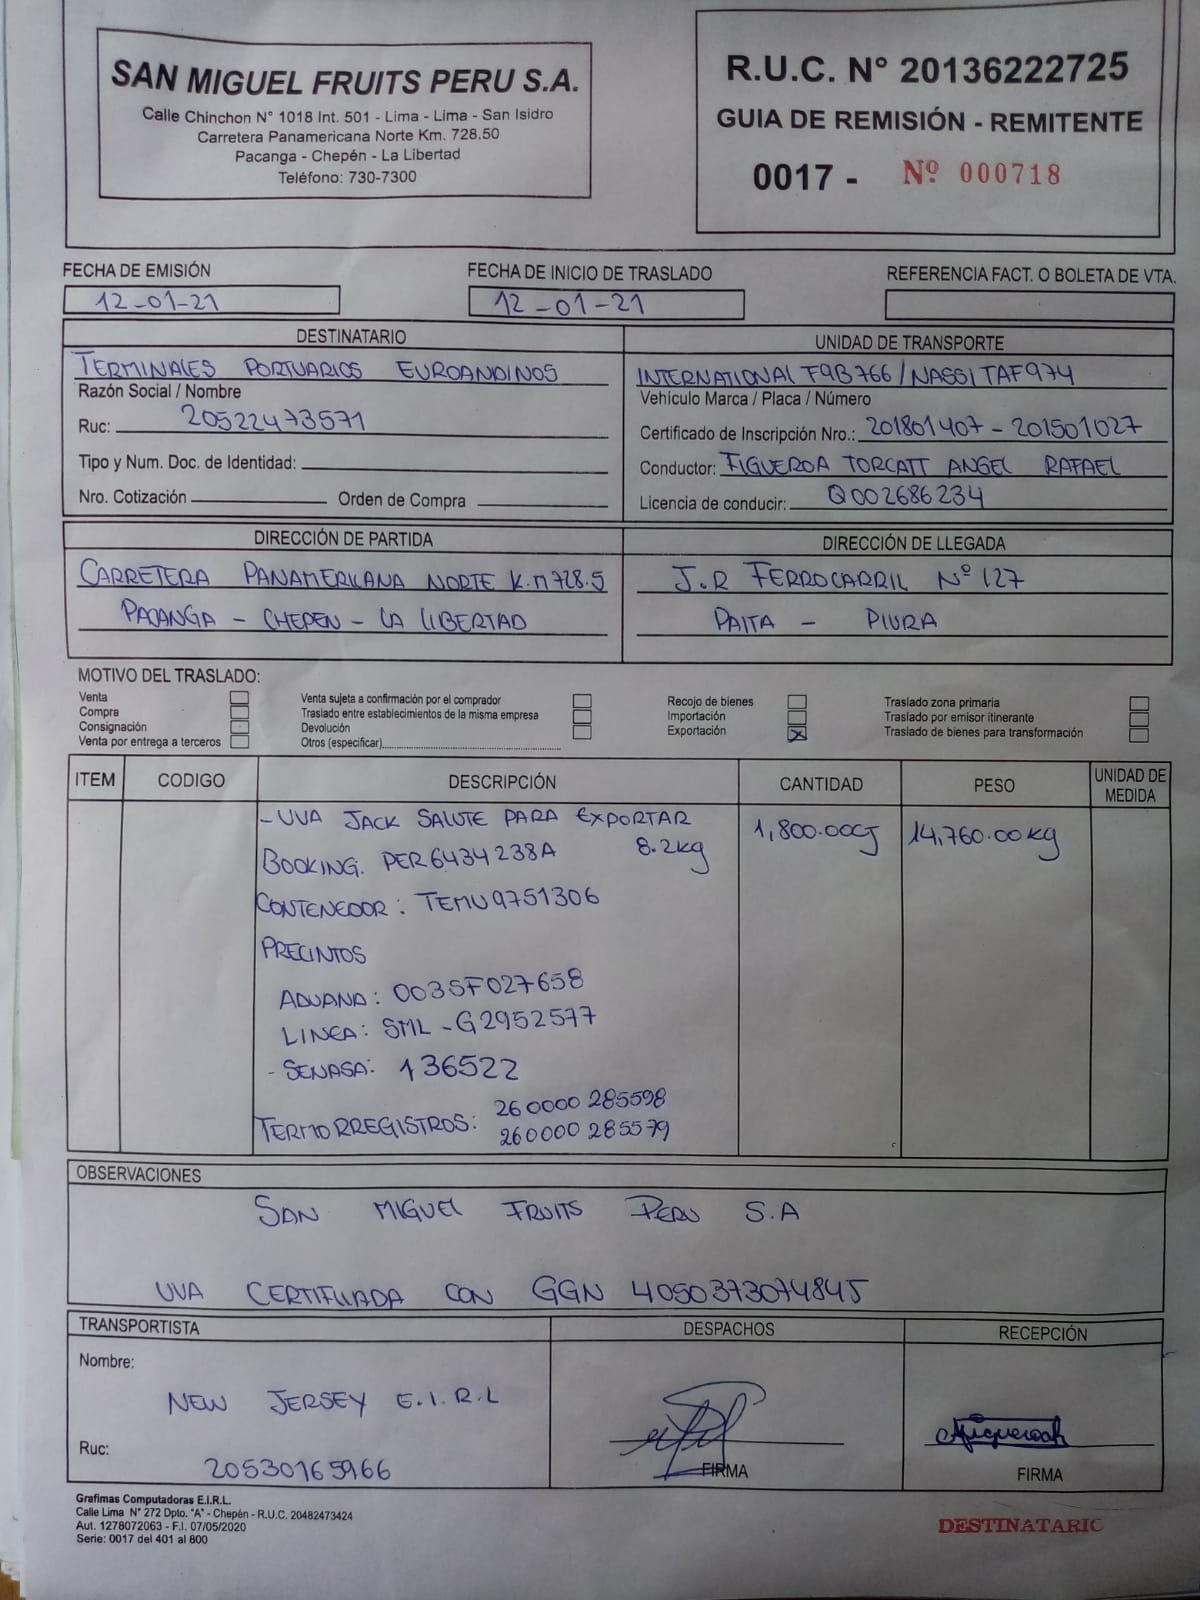 SAN MIGUEL FRUITS PERU S.A.
Calle Chinchon N° 1018 Int. 501 - Lima - Lima - San Isidro
Carretera Panamericana Norte Km. 728.50
Pacanga - Chepén - La Libertad
Teléfono: 730-7300
R.U.C. N° 20136222725
GUIA DE REMISIÓN - REMITENTE
0017 - Nº 000718
FECHA DE EMISIÓN
12-01-21
FECHA DE INICIO DE TRASLADO
12-01-21
REFERENCIA FACT. O BOLETA DE VTA.
DESTINATARIO
TERMINALES PORTUARIOS EUROANDINOS
Razón Social / Nombre
Ruc: 20522473571
Tipo y Num. Doc. de Identidad:
Nro. Cotización Orden de Compra
UNIDAD DE TRANSPORTE
INTERNATIONAL F9B766 / NASSI TAF974
Vehículo Marca / Placa / Número
Certificado de Inscripción Nro.: 201801407 - 201501027
Conductor: FIGUEROA TORCATT ANGEL RAFAEL
Licencia de conducir: Q002686234
DIRECCIÓN DE PARTIDA
CARRETERA PANAMERICANA NORTE K.M 728.5
PACANGA - CHEPEN - LA LIBERTAD
DIRECCIÓN DE LLEGADA
J.R FERROCARRIL Nº 127
PAITA - PIURA
MOTIVO DEL TRASLADO:
Venta
Compra
Consignación
Venta por entrega a terceros
Venta sujeta a confirmación por el comprador
Traslado entre establecimientos de la misma empresa
Devolución
Otros (especificar)
Recojo de bienes
Importación
Exportación X
Traslado zona primaria
Traslado por emisor itinerante
Traslado de bienes para transformación
ITEM CODIGO DESCRIPCIÓN CANTIDAD PESO UNIDAD DE MEDIDA
- UVA JACK SALUTE PARA EXPORTAR 1,800.00CJ 14,760.00kg
BOOKING: PER6434238A 8.2kg
CONTENEDOR: TEMU9751306
PRECINTOS
ADUANA: 0035F027658
LINEA: SML - G2952577
- SENASA: 136522
TERMORREGISTROS: 260000285598
260000285579
OBSERVACIONES
SAN MIGUEL FRUITS PERU S.A
UVA CERTIFICADA CON GGN 4050373074845
TRANSPORTISTA
Nombre:
NEW JERSEY E.I.R.L
Ruc:
20530165966
DESPACHOS
FIRMA
RECEPCIÓN
FIRMA
Grafimas Computadoras E.I.R.L.
Calle Lima N° 272 Dpto. "A" - Chepén - R.U.C. 20482473424
Aut. 1278072063 - F.I. 07/05/2020
Serie: 0017 del 401 al 800
DESTINATARIO